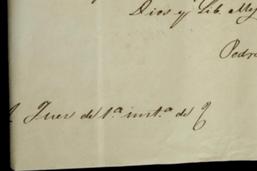 Dios y Lib. Mej
Pedro
Juez de 1.ª inst.ª de